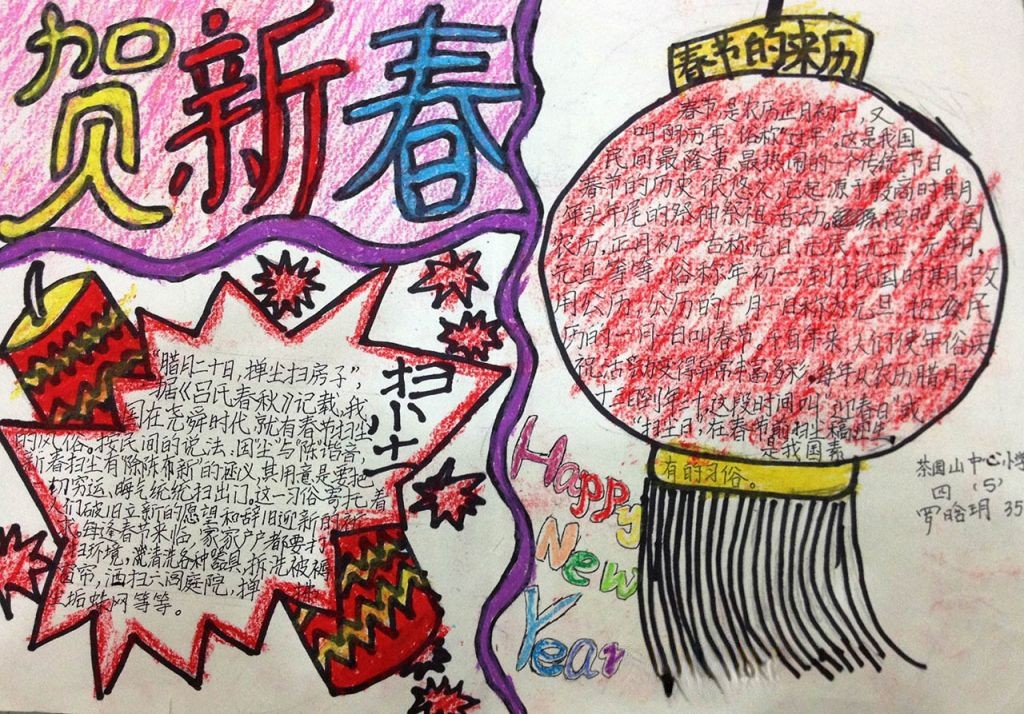 贺新春
春节的来历
春节,是农历正月初一,又
叫阴历年,俗称“过年”。这是我国
民间最隆重、最热闹的一个传统节日。
春节的历史很悠久,它起源于殷商时期
年头年尾的祭神祭祖活动。按照我国
农历,正月初一古称元日、元辰、元正、元朔、
元旦等等,俗称年初一,到了民国时期,改
用公历,公历的一月一日称为元旦,把农
历的一月一日叫春节。千百年来,人们使年俗庆
祝活动变得异常丰富多彩。每年从农历腊月二
十三起到年三十,这段时间叫“迎春日”或
“扫尘日”,在春节前扫尘搞卫生
是我国素
有的习俗。
扫尘
“腊月二十日,掸尘扫房子”,
据《吕氏春秋》记载,我
国在尧舜时代,就有春节扫尘
的风俗。按民间的说法:因“尘”与“陈”谐音,
新春扫尘有“除陈布新”的涵义,其用意是要把
切穷运、晦气统统扫出门。这一习俗寄托着
人们破旧立新的愿望和辞旧迎新的祈
求。每逢春节来临,家家户户都要打
扫环境,清洗各种器具,拆洗被褥
窗帘,洒扫六闾庭院,掸
垢蛛网等等。
Happy
New
Year
茶园山中心小学
四(5)
罗晗玥 35